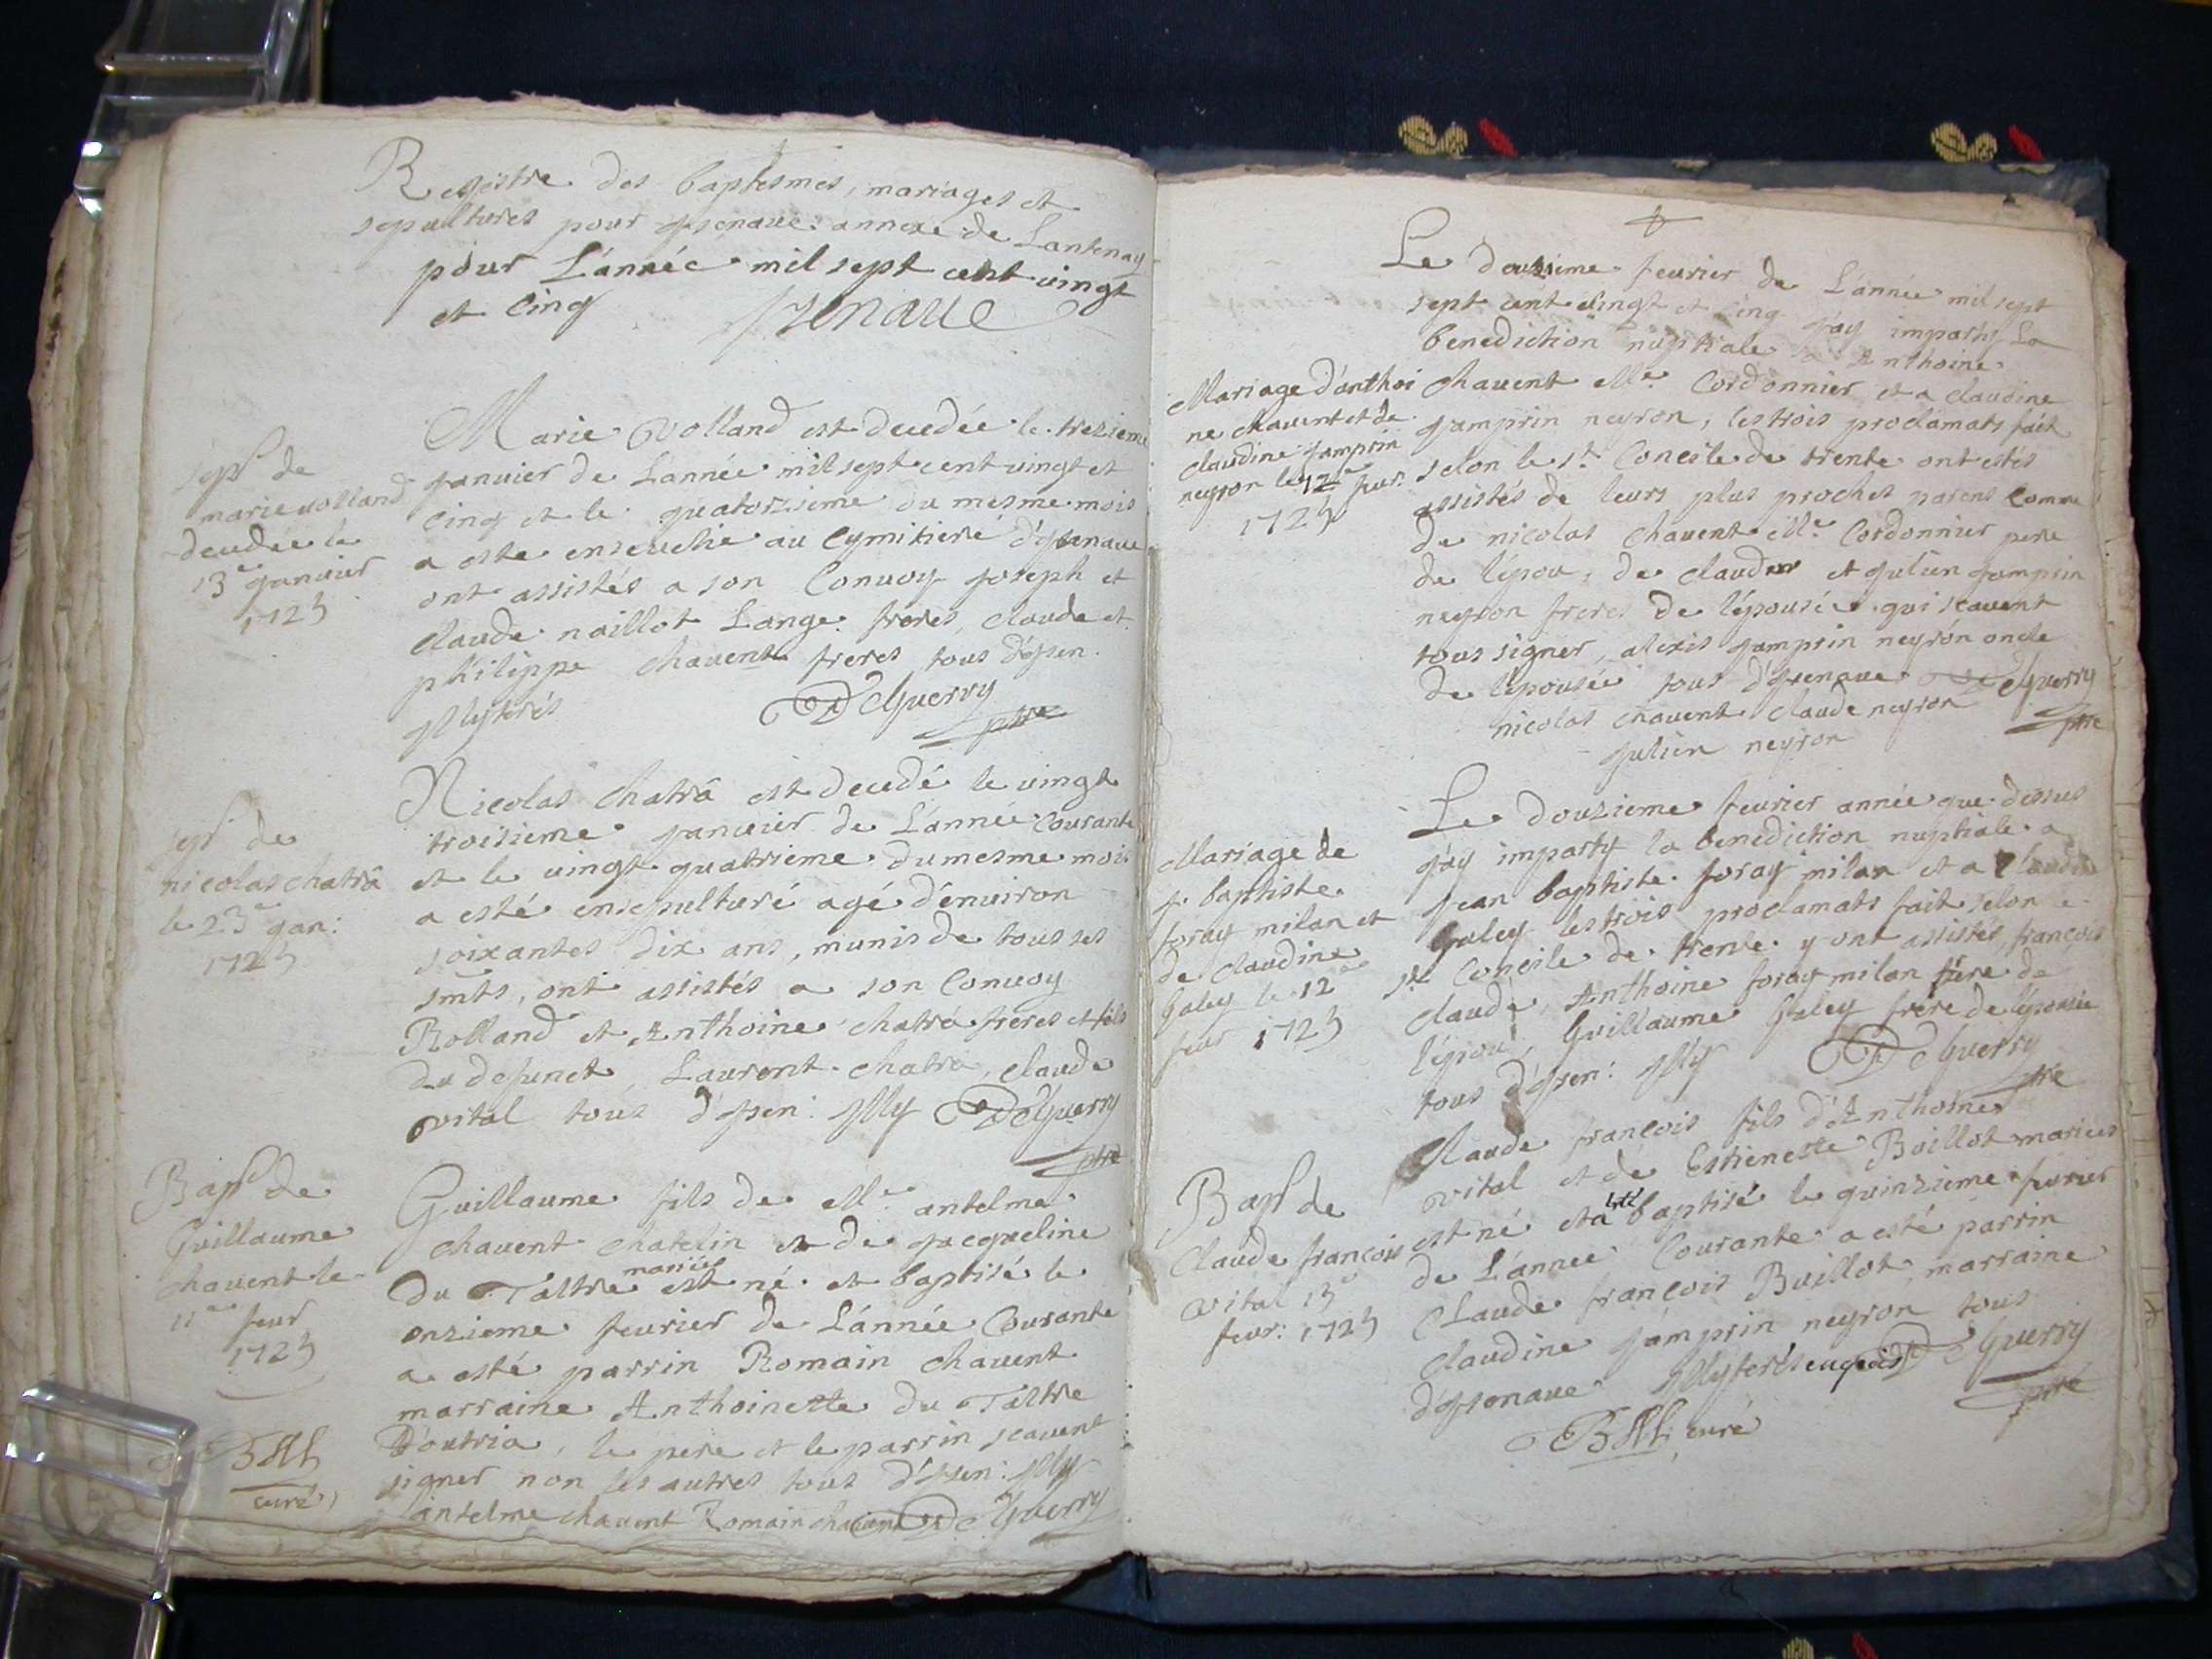 Registre des baptesmes, mariages et
sepultures pour Izenave annexe de Lantenay
pour L'année mil sept cent vingt
et cinq Izenave
sepre de
marie volland
decedée le
13e janvier
1725
Marie volland est decedée le trezieme
janvier de L'année mil sept cent vingt et
cinq et le quatorzieme du mesme mois
a este ensevelie au cymitiere d'Izenave
ont assistés a son Convoy joseph et
claude naillot Lange freres, claude et
philippe chavent freres tous d'Izen.
Illyterés DeGuerry
ptre
sepre de
nicolas chatrâ
le 23e jan:
1725
Nicolas chatrâ est decedé le vingt
troisieme janvier de L'année courante
et le vingt quatrieme du mesme mois
a esté ensepulturé agé d'environ
soixantes dix ans, munis de tous ses
smts, ont assistés a son Convoy
Rolland et Anthoine chatrâ freres et fils
du defunct, Laurent chatrâ, claude
vital tous d'Izen: Illy DeGuerry
ptre
Bapt de
Guillaume
chavent le
11e fevr
1725
BAL
curé
Guillaume fils de Me antelme
chavent chatelin et de jacqueline
mariés
du Taltre est né et baptisé le
onzieme fevrier de L'année Courante
a esté parrin Romain chavent
marraine Anthoinette du Taltre
D'outria, le pere et le parrin scavent
signer non les autres tous d'Izen: Illy
antelme chavent Romain chavent DeGuerry
Le douzieme fevrier de L'année mil sept
sept cent vingt et cinq j'ay imparty La
benediction nuptiale a Anthoine
Mariage d'anthoi
ne chavent et de
claudine jamprin
neyron le 12e fevr.
1725
chavent Me Cordonnier et a claudine
jamprin neyron, les trois proclamats fait
selon le st Concile de trente ont estés
assistés de leurs plus proches parens comme
de nicolas chavent Me Cordonnier pere
de l'épou, de claude et julien jamprin
neyron freres de l'épousée qui scavent
tous signer, alexis jamprin neyron oncle
de l'épousée tous d'Izenave DeGuerry
nicolas chavent claude neyron ptre
julien neyron
Mariage de
j. baptiste
foray milan et
de claudine
Galey le 12
fevr 1725
Le douzieme fevrier année que dessus
j'ay imparty la benediction nuptiale a
jean baptiste foray milan et a Claudine
Galey les trois proclamats fait selon le
st Concile de trente y ont assistés françois
claude, Anthoine foray milan frere de
l'épou, Guillaume Galey frere de l'épousée
tous d'Izen: Illy DeGuerry
ptre
Bapt de
Claude françois
vital 15
fevr: 1725
Claude françois fils d'Anthoine
vital et de Estienette Buillot mariés
est né et a esté baptisé le quinzieme fevrier
de L'année Courante a esté parrin
Claude françois Buillot, marraine
claudine jamprin neyron tous
d'Izenave Illyterés DeGuerry
ptre
BAL curé